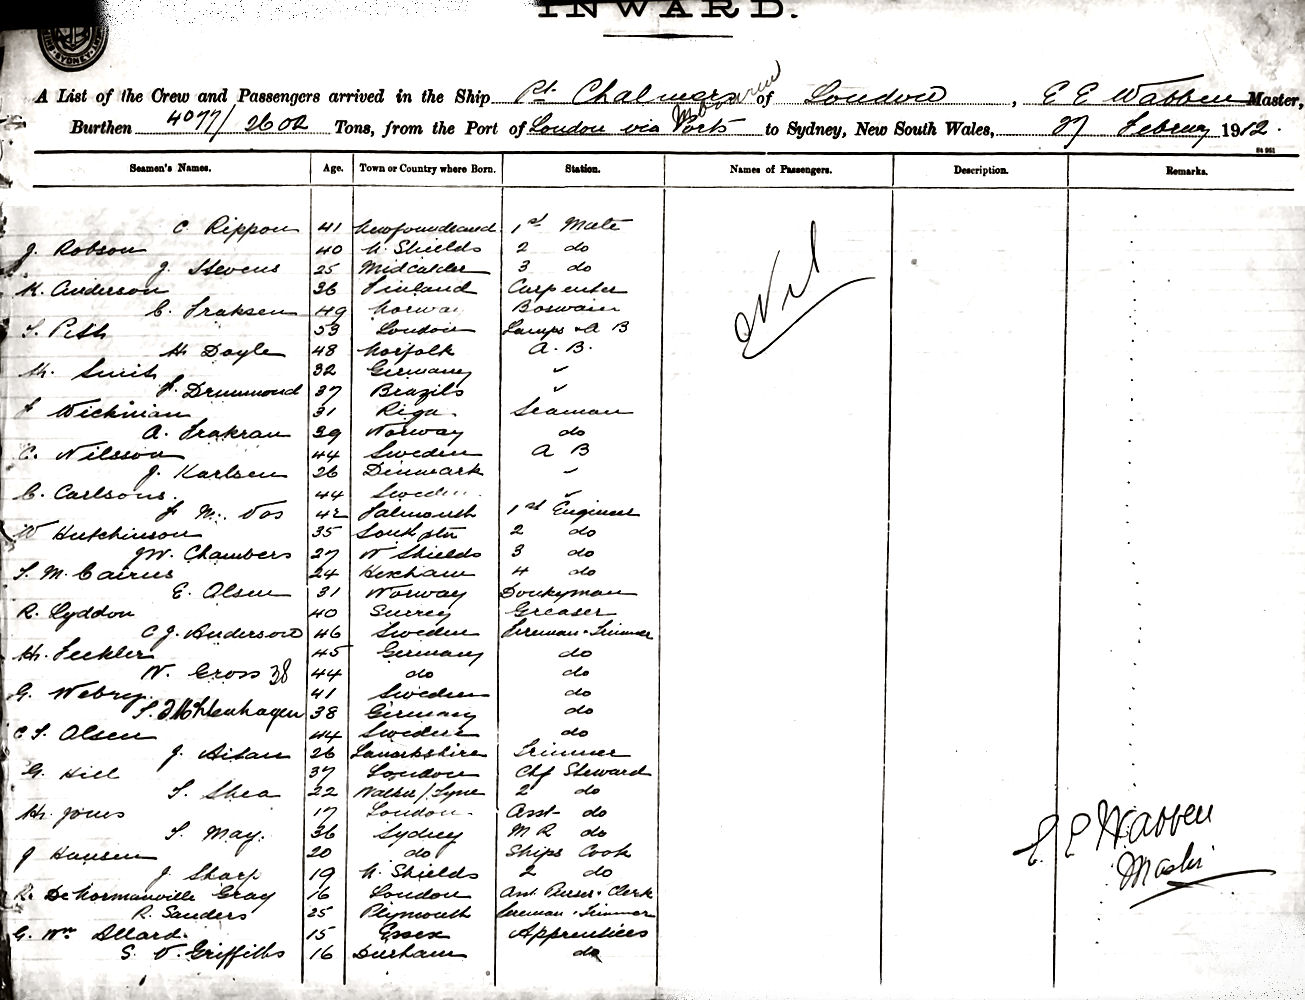 INWARD.
SYDNEY
A List of the Crew and Passengers arrived in the Ship Pt Chalmers of London, E E Warren Master,
Burthen 4077/2602 Tons, from the Port of London via Melbourne Ports to Sydney, New South Wales, 27 February 1912.
Seamen's Names. Age. Town or Country where Born. Station. Names of Passengers. Description. Remarks.
C Rippon 41 Newfoundland 1st Mate
J. Robson 40 N. Shields 2 do
J. Stevens 25 Midcalder 3 do
K. Anderson 36 Finland Carpenter
C. 49 Norway Boswain
53 London Lamps & A B
H Doyle 48 Norfolk A. B.
Smith 32 Germany "
J. Drummond 37 Brazils "
J Wickman 31 Riga Seaman
A. 39 Norway do
C. Nilsson 44 Sweden A B
J. Karlsen 26 Denmark "
C. Carlsons. 44 Sweden "
J M. Vos 42 Falmouth 1st Engineer
W Hutchinson 35 Southptn 2 do
J W. Chambers 27 N Shields 3 do
T. M. Cairns 24 Hexham 4 do
E. Olsen 31 Norway Donkeyman
R. Lyddon 40 Surrey Greaser
C J. Anderson 46 Sweden Fireman & Trimmer
45 Germany do
W. Gross 38 44 do do
G. 41 Sweden do
38 Germany do
C F. Olsen 44 Sweden do
J. Aitan 26 Lanarkshire Trimmer
G. Hill 37 London Chf Steward
T. Shea 22 Walker/Tyne 2 do
Jones 17 London. Asst do
T. May. 36 Sydney M R do
J Hansen 20 do Ships Cook
J Sharp 19 N. Shields 2 do
R. DeNormanville Gray 16 London Ast. Purser & Clerk
R. Sanders 25 Plymouth Fireman & Trimmer
G. Wm Allard. 15 Essex Apprentices
S. V. Griffiths 16 Durham do
Nil
E E Warren
Master